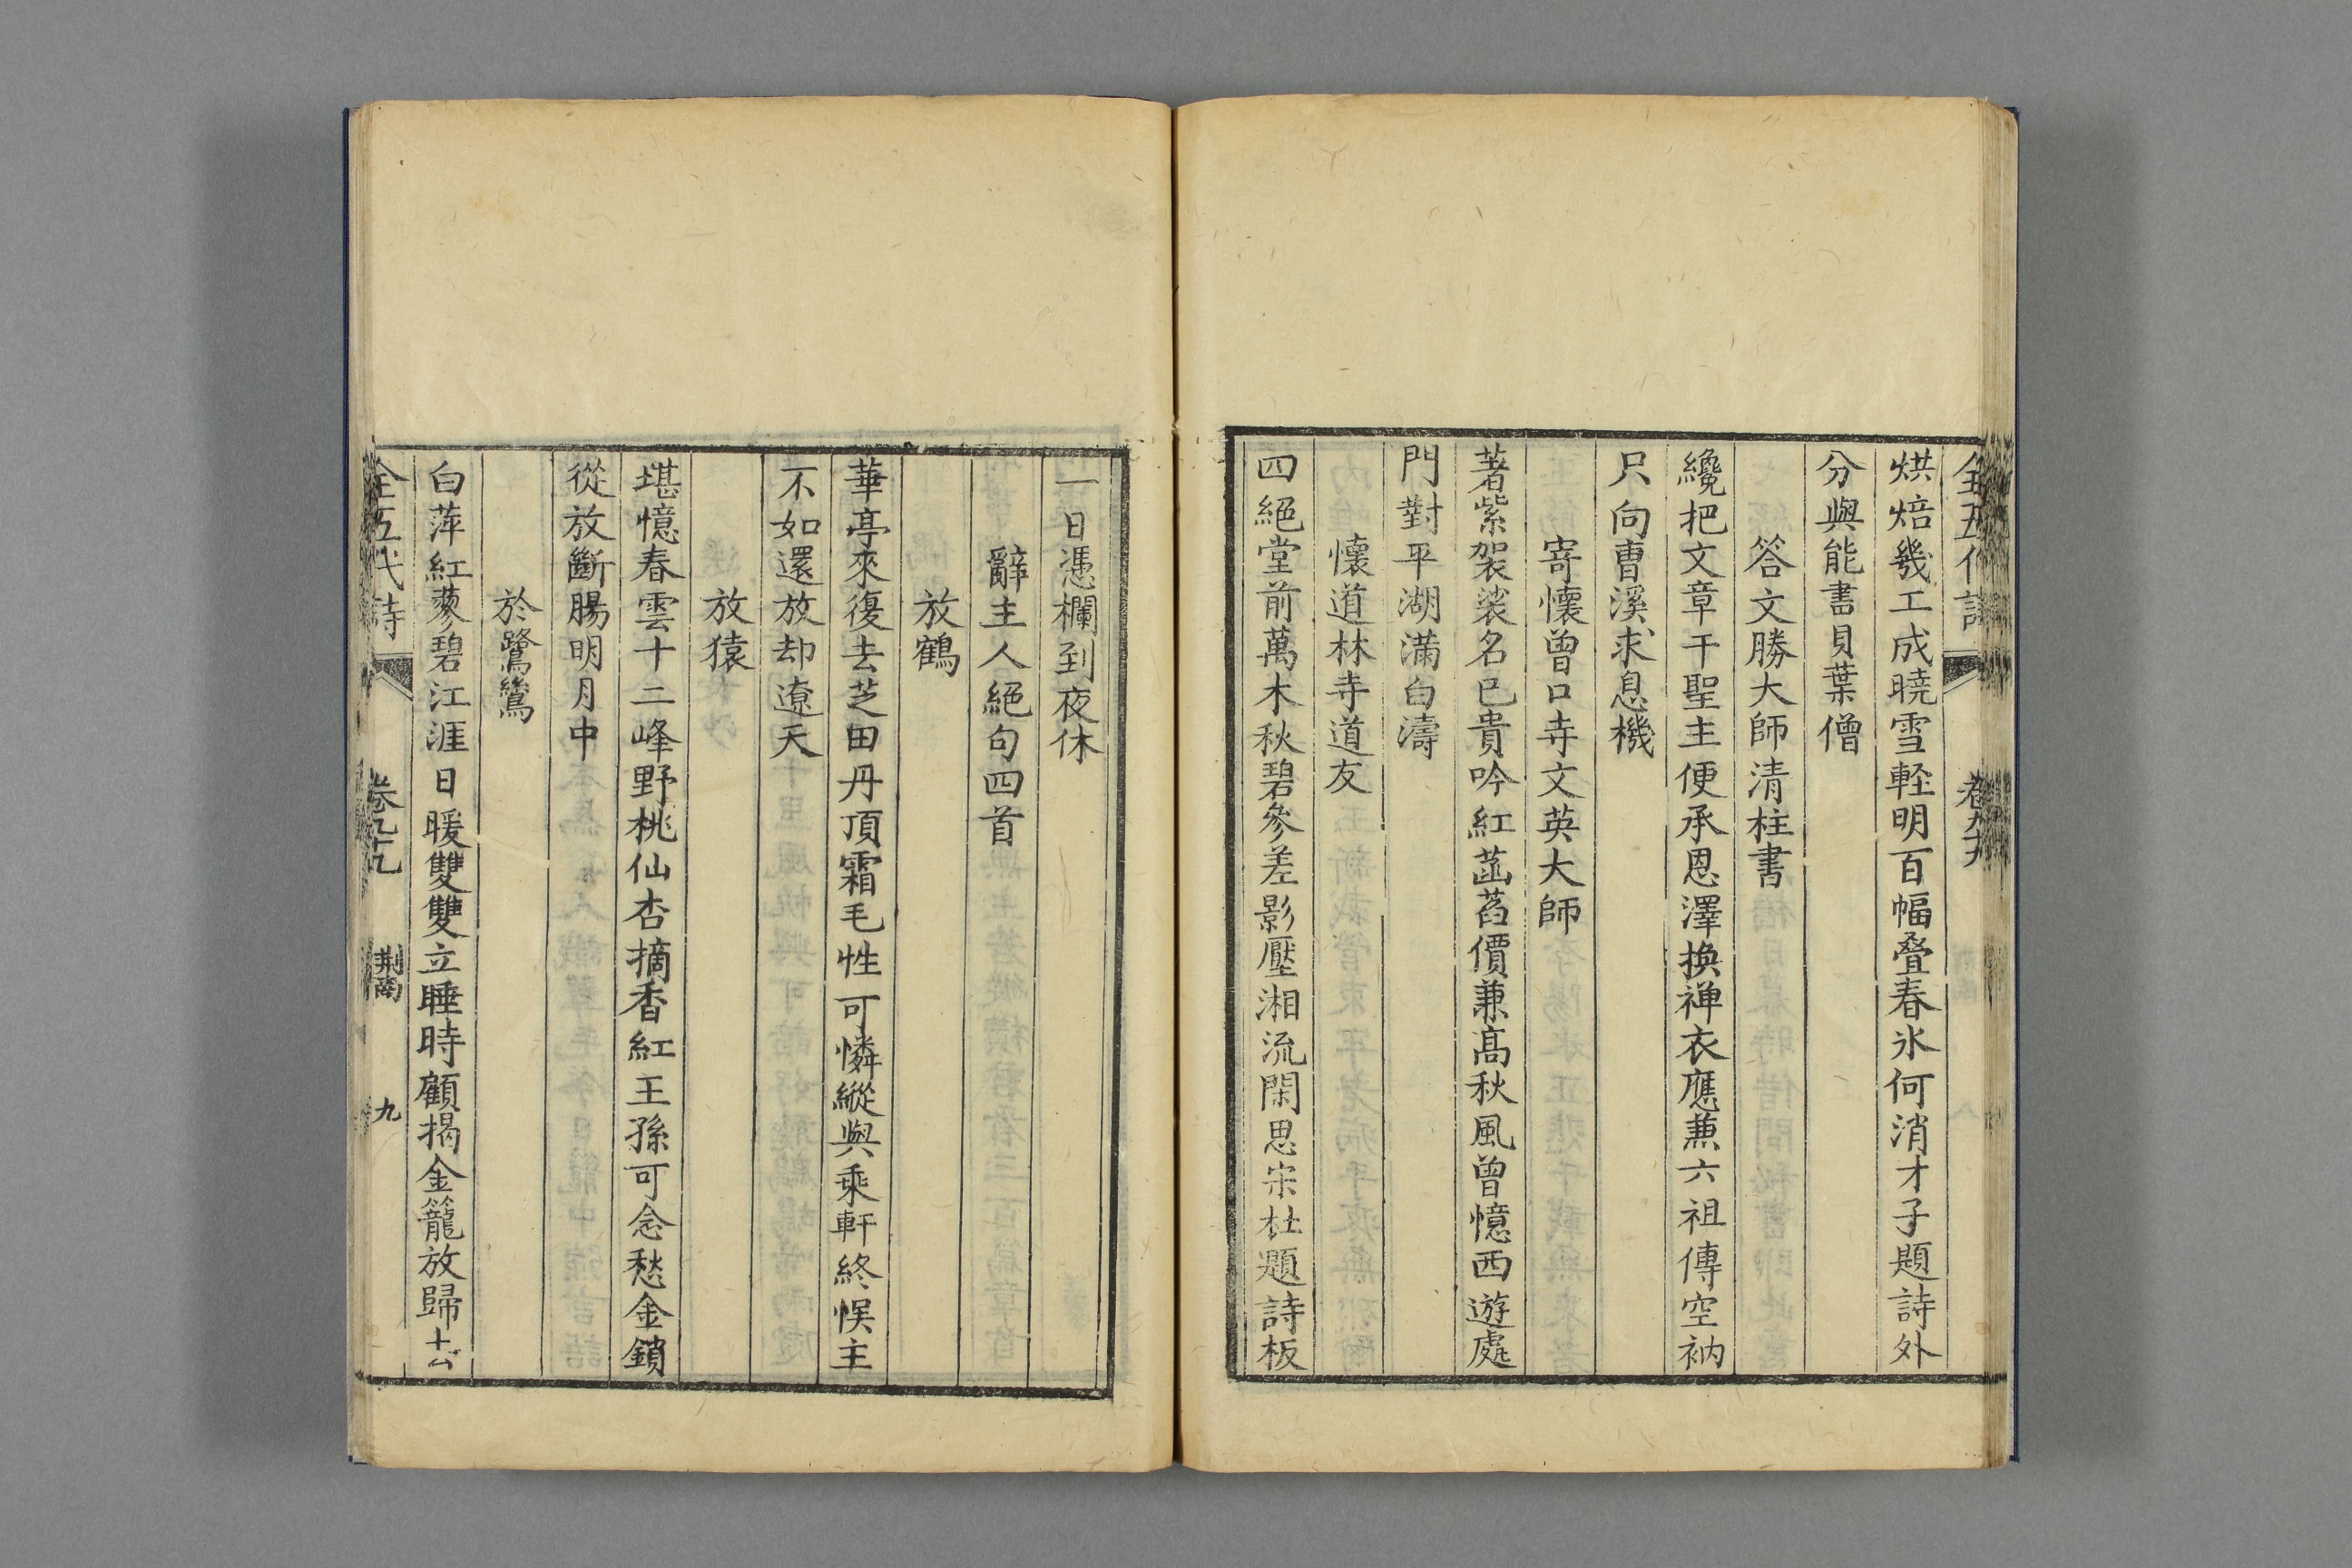 全五代詩 卷九十九
烘焙幾工成曉雪軽明百幅疊春氷何消才子題詩外
分與能書貝葉僧
答文勝大師清柱書
纔把文章干聖主便承恩澤換禅衣應蕪六祖傳空衲
只向曹溪求息機
寄懷曾口寺文英大師
著紫袈裟名已貴吟紅菡萏價蒹髙秋風曾憶西遊處
門對平湖滿白濤
懷道林寺道友
四絕堂前萬木秋碧參差影壓湘流閑思宋杜題詩板
一日憑欄到夜休
辭主人絕句四首
放鶴
華亭來復去芝田丹頂霜毛性可憐縱與乘軒終悮主
不如還放却遼天
放猿
堪憶春雲十二峰野桃仙杏摘香紅王孫可念愁金鎖
從放斷腸明月中
於鷺鷥
白萍紅蓼碧江涯日暖雙雙立睡時願揭金籠放歸去
全五代詩 卷九十九 荆南 九